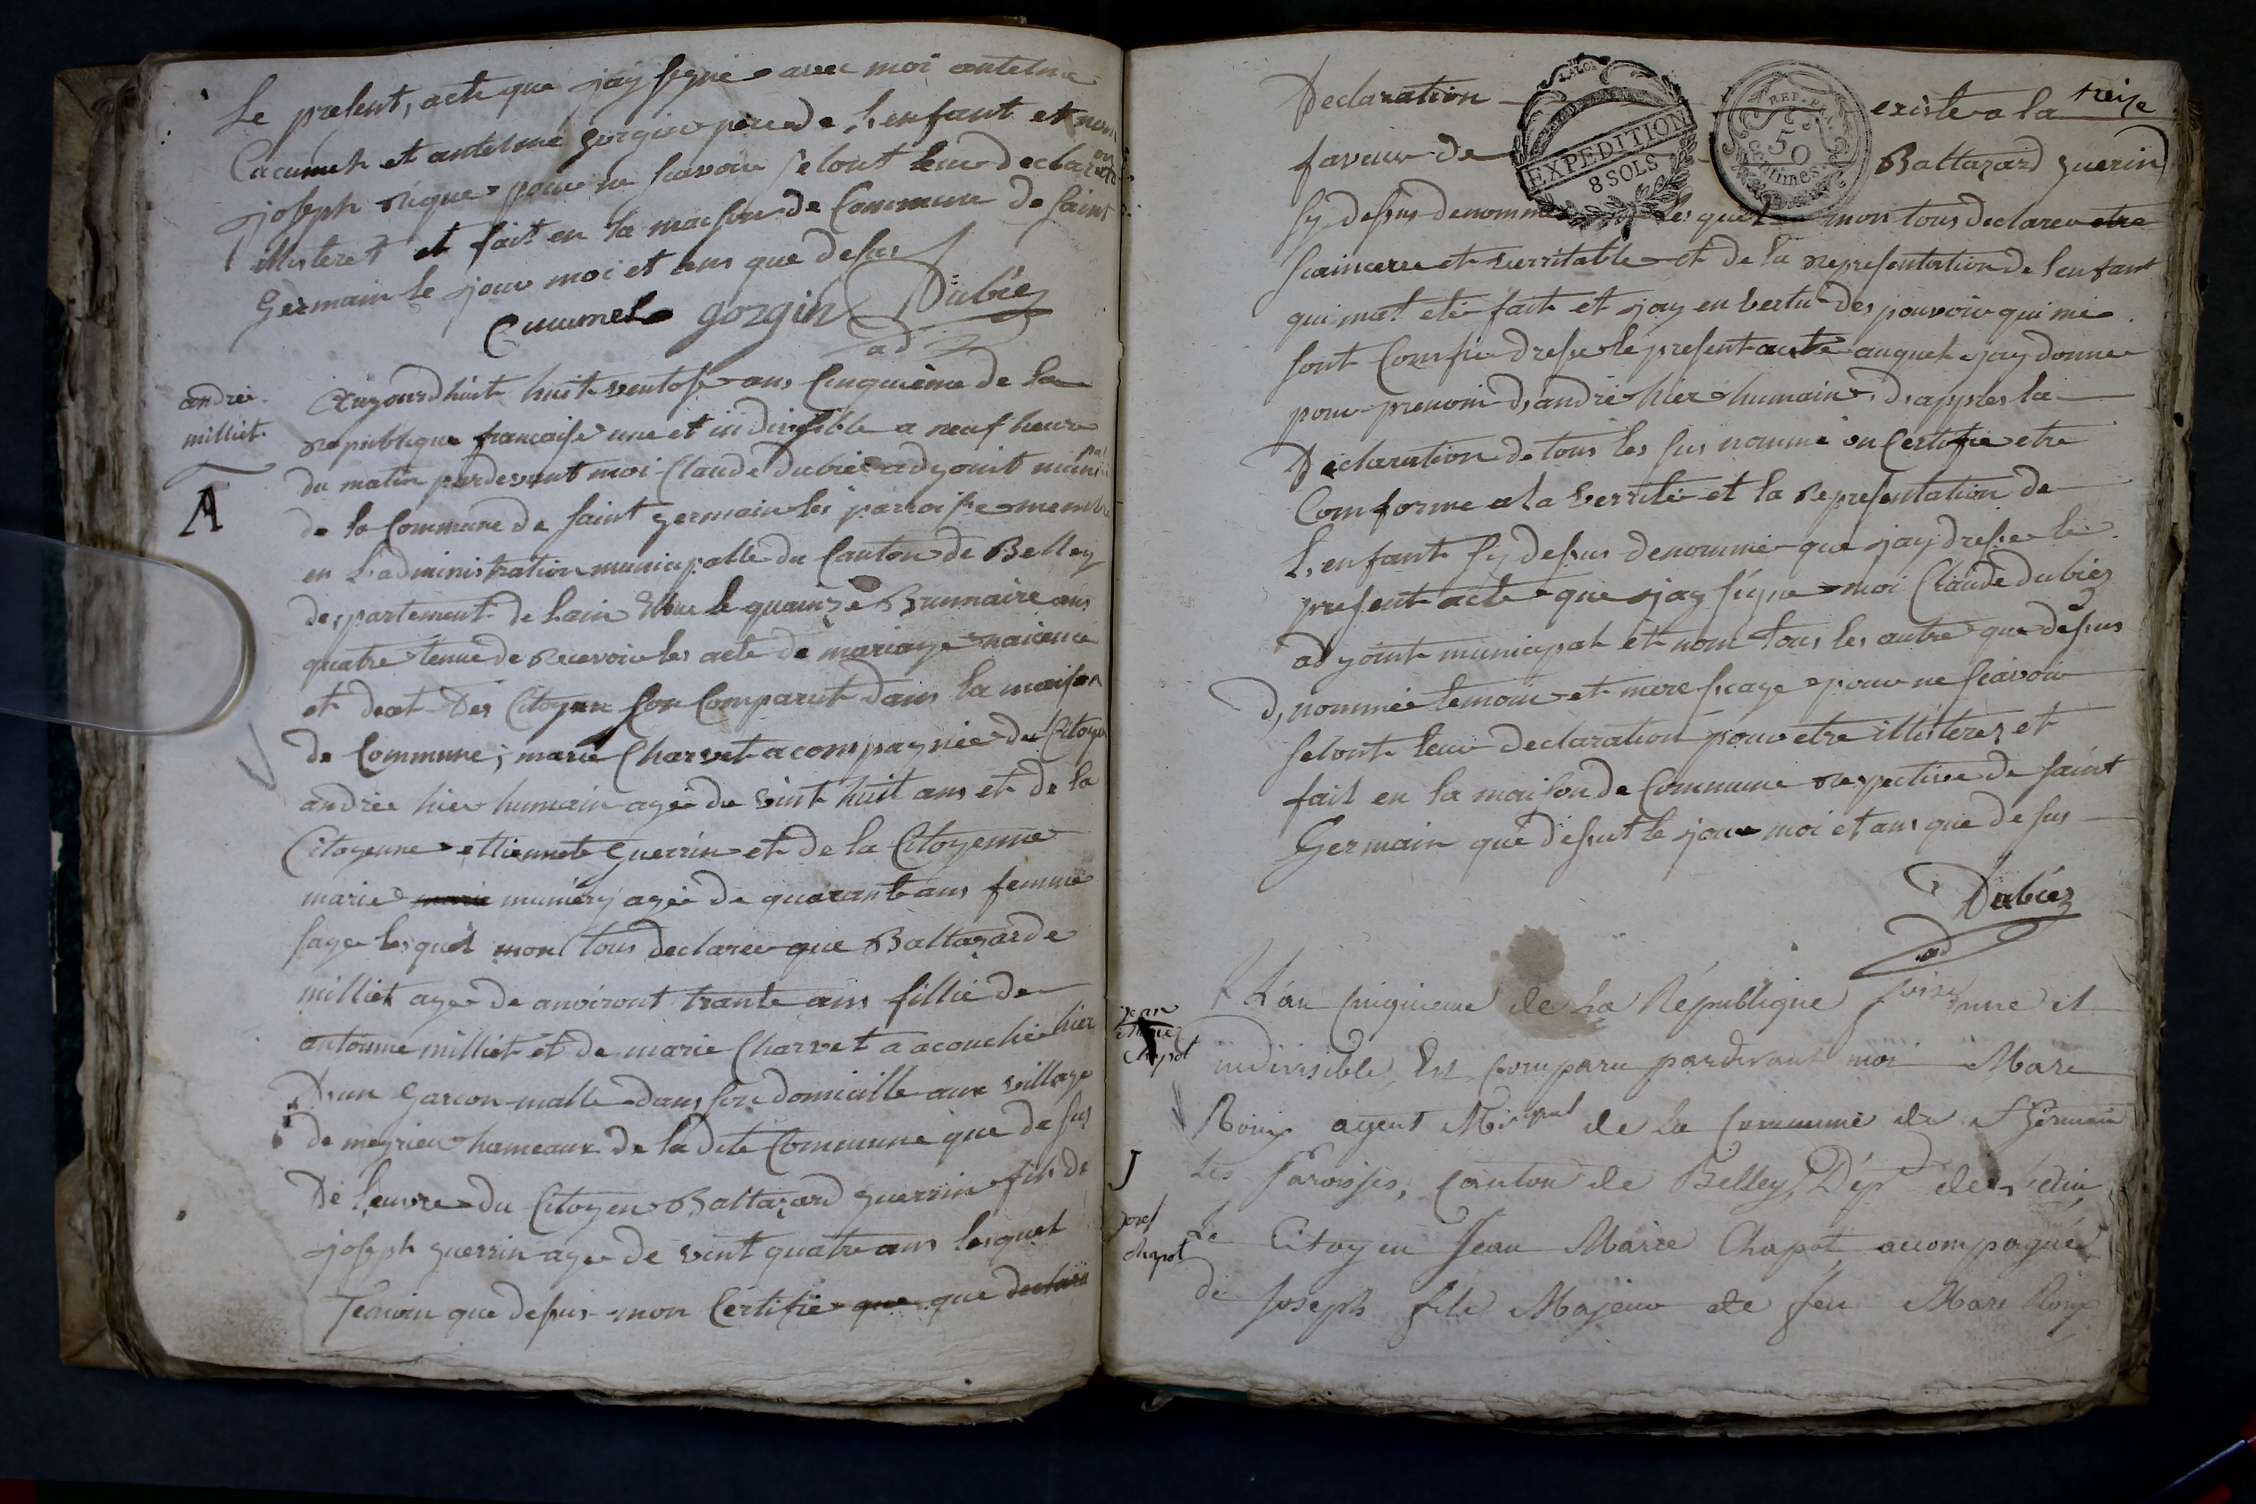 Le present, acte que jay signé avec moi antelme
Cucumel et antelme gorgin pere de L,enfant et non
joseph rique pour ne scavoir selont leur declaration
illisteret et fait en la maison de Commune de saint
Germain le jour moi et ans que desus
Cucumel gorgin Dubiez
ad
andrie
milliet
A
Aujourdhuit huit ventose ans Cinquième de la
republique francaise une et indivisible a neuf heure
du matin pardevant moi Claude dubiez adjoint munipal
de la Commune de saint germain les parroisse membre
en L'administration municipalle du Canton de Belley
despartement de Lain Elue le quainze Brumaire ans
quatre tenue de recevoir les acte de mariage naicence
et deat Des Citoyen son Comparut dans la maison
de Commune; marie Charvet acompagnié du Citoyen
andrie hier humain agé de vint huit ans et de la
Citoyenne ettiennete Guerrin et de la Citoyenne
marie marie muniéry agée de quarante ans femme
sage lesquel mon tous declaree que Baltazarde
milliet agee de anviront trante ans fillie de
antoinne milliet et de marie Charvet a acouchée hier
D,un Garcon malle dans son domicille aux village
de meyrieu hameaux de la dite Commune que desus
De leuvre du Citoyen Baltazard guerrin fils de
joseph guerrin age de vint quatre ans lesquel
Temoin que desus mon Certifié que que declara
treize
Declaration existe a la
faveur de Baltazard guerin
EXPEDITION
8 SOLS
REP. FRA.
50
Centimes
sy desus denommé lesquel mon tous declaree etre
saincere et verritable et de la representation de lenfant
qui mat eté fait et jay en vertu des pouvoir qui me
sont Comfié dresse le present acte auquel jay donne
pour prenom D,andrie hier humain, D,appres la
Declaration de tous les sus nommé on Certifie etre
Comforme a la verrité et la representation de
L,enfant sy desus denommé que jay dresse le
present acte que jay signe moi Claude dubiez
adjoint municipal et nom tous les autre que desus
D,nommée temoin et mere sage pour ne scavoir
selont leur declaration pour etre illisterez et
fait en la maison de Commune respective de saint
Germain que desut le jour moi et ans que desus
Dubiez
ad
jean
Marie
Chapot
J
josef
chapot
L'an Cinquieme de La République une et
indivisible, Est comparu pardevant moi Marc
Roux agent Mcipal de La Commune de St Germain
Les Paroisses, Canton de Belley, Dépt de L'Ain,
Le Citoyen Jean Marie Chapot, accompagné
de Joseph fils Majeur de feu Marc Roux